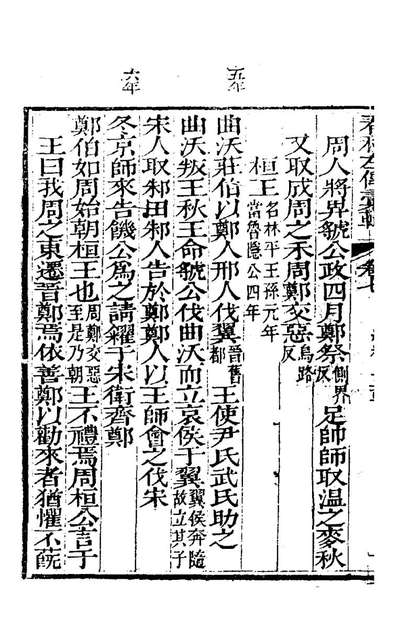 周人將畀虢公政四月鄭祭側界反足帥師取温之麥秋
又取成周之禾周鄭交惡烏路反
桓王名林平王孫元年當魯隱公四年
五年
曲沃莊伯以鄭人邢人伐翼晉舊都王使尹氏武氏助之
曲沃叛王秋王命虢公伐曲沃而立哀侯于翼翼侯奔隨故立其子
宋人取邾田邾人告於鄭鄭人以王師會之伐宋
六年
冬京師來告饑公爲之請糴于宋衛齊鄭
鄭伯如周始朝桓王也周鄭交惡至是乃朝王不禮焉周桓公言于
王曰我周之東遷晉鄭焉依善鄭以勸來者猶懼不蔇